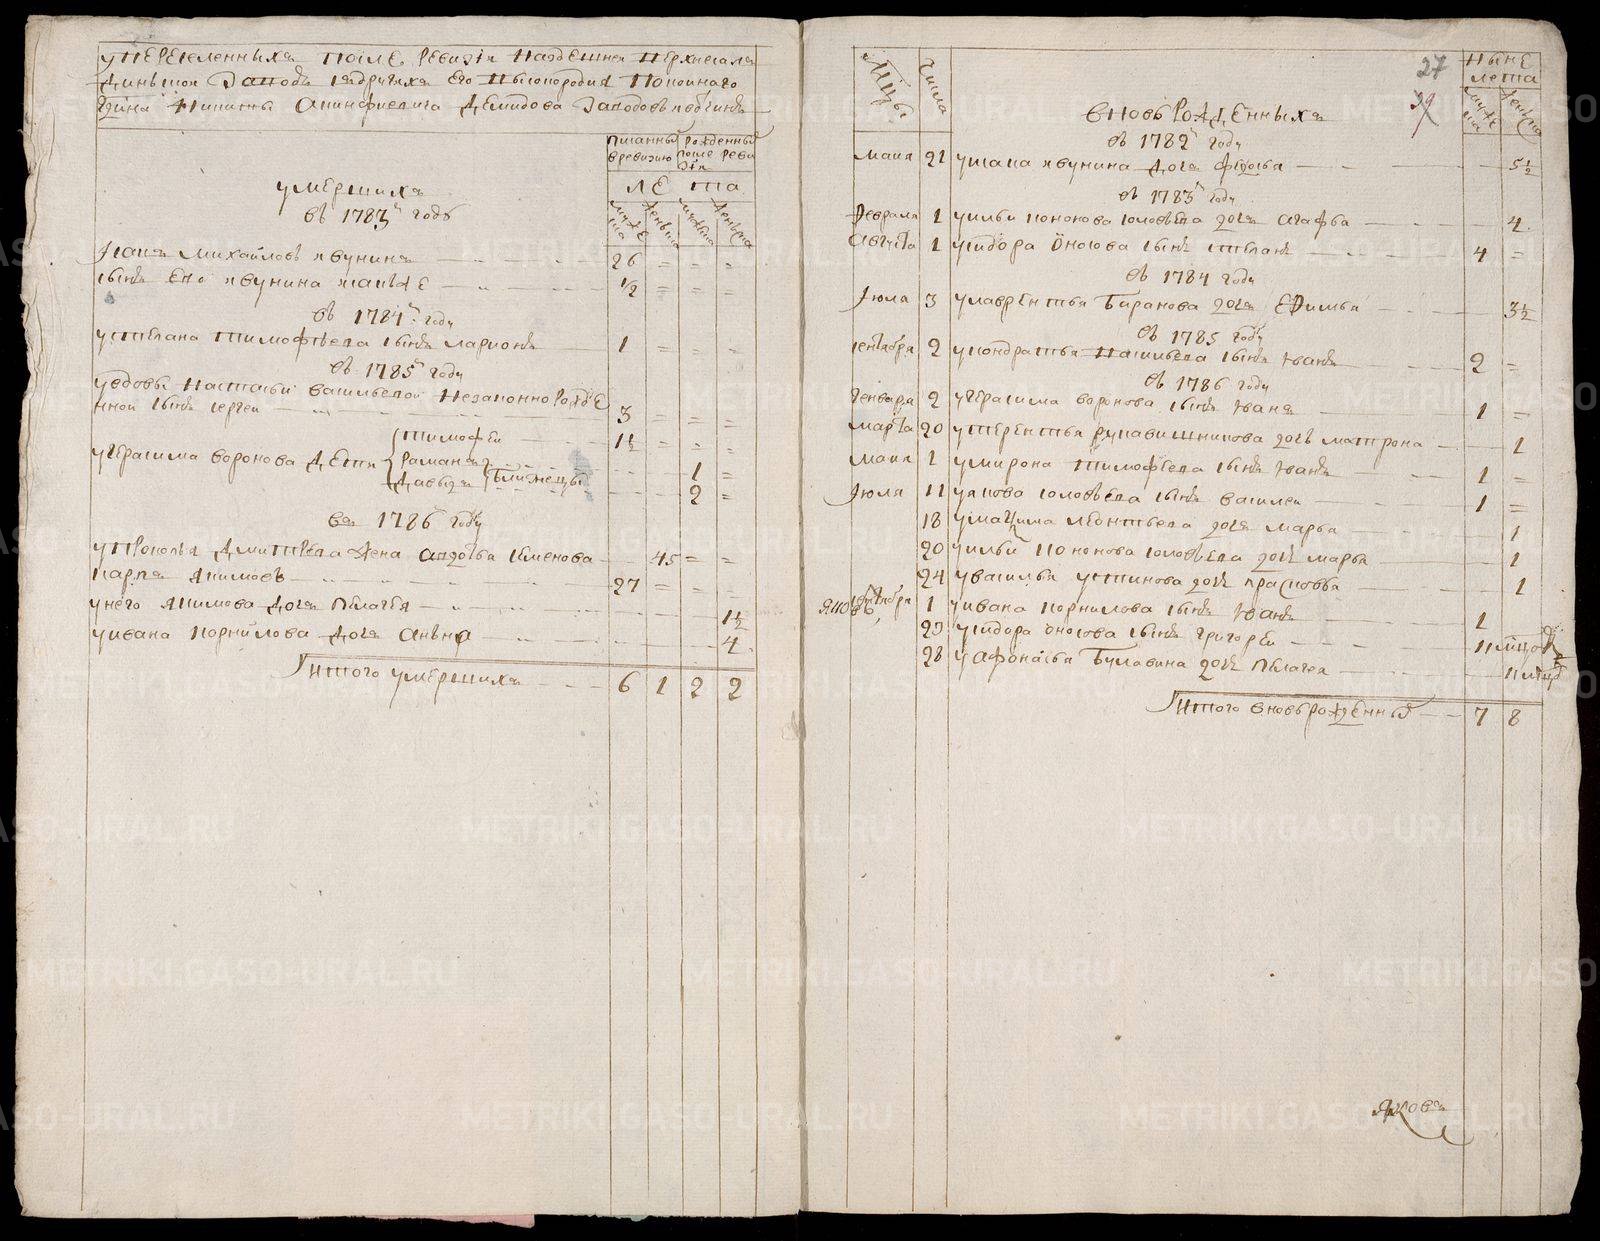 уПЕРЕселенныхъ послЕ Ревизiи Наздешнеи Верхнесал
динскои Заводъ сздругихъ Его Высокородия Покоинаго
Гдина Никиты Акинфиевича Демидова Заводовъ
Писанных в ревизию
Рожденных после Ревизiи
лЕ та
умершихъ
въ 1783м году
Исакъ Михаиловъ Явунинъ 26 = = =
сынъ Его Явунина 1/2 = = =
въ 1784м году
уСтепана Тимофеева сынъ Ларионъ 1 = = =
въ 1785м году
уВдовы Настасьи Васильевои Незаконно Рожде
ннои сынъ Сергеи 3 = = =
Тимофеи 1 1/2 = = =
уГерасима Воронова Дети
Раманъ 1 =
Давыдъ близнецы 2 =
въ 1786м году
уПрокопья Дмитреева Жена Авдотья Семенова 45 = =
Карпъ Якимовъ 27 = = =
у него Якимова Дочь Пелагья 1 1/2
уИвана Корнилова Дочь Анъна 4
Итого умершихъ 6 1 2 2
27
39
Мцы
Числа
НынЕ
лета
вновь Рожденныхъ
въ 1782м году
Маия 21 уИсака Явунина Дочь Федосья 5 1/2
въ 1783м году
Февраля 1 уИльи Кононова Соловьева дочь Агафья 4
Августа 1 уСидора Оносова сынъ Степанъ 4 =
въ 1784 году
Июля 3 уЛаврентья Баранова дочь Ефимья 3 1/2
въ 1785 году
сентября 2 уКондратья Васильева сынъ Иванъ 2 =
въ 1786 году
Генваря 2 уГерасима Воронова сынъ Иванъ 1 =
Марта 20 уТерентья Рукавишникова дочь Матрона 1
Маия 1 уМирона Тимофеева сынъ Иванъ 1 =
Июля 11 уЯкова Соловьева сынъ Василеи 1 =
18 уМаксима Леонтьева дочь Марья 1
20 уИльи Кононова Соловьева дочь Марья 1
24 уВасилья Устинова дочь Прасковья 1
Октября 1 уИвана Корнилова сынъ Иванъ 1
29 уСидора Оносова сынъ Григореи
28 уАфонасья Булавина дочь Пелагея
Итого вновьрожденных 7 8
Яковъ